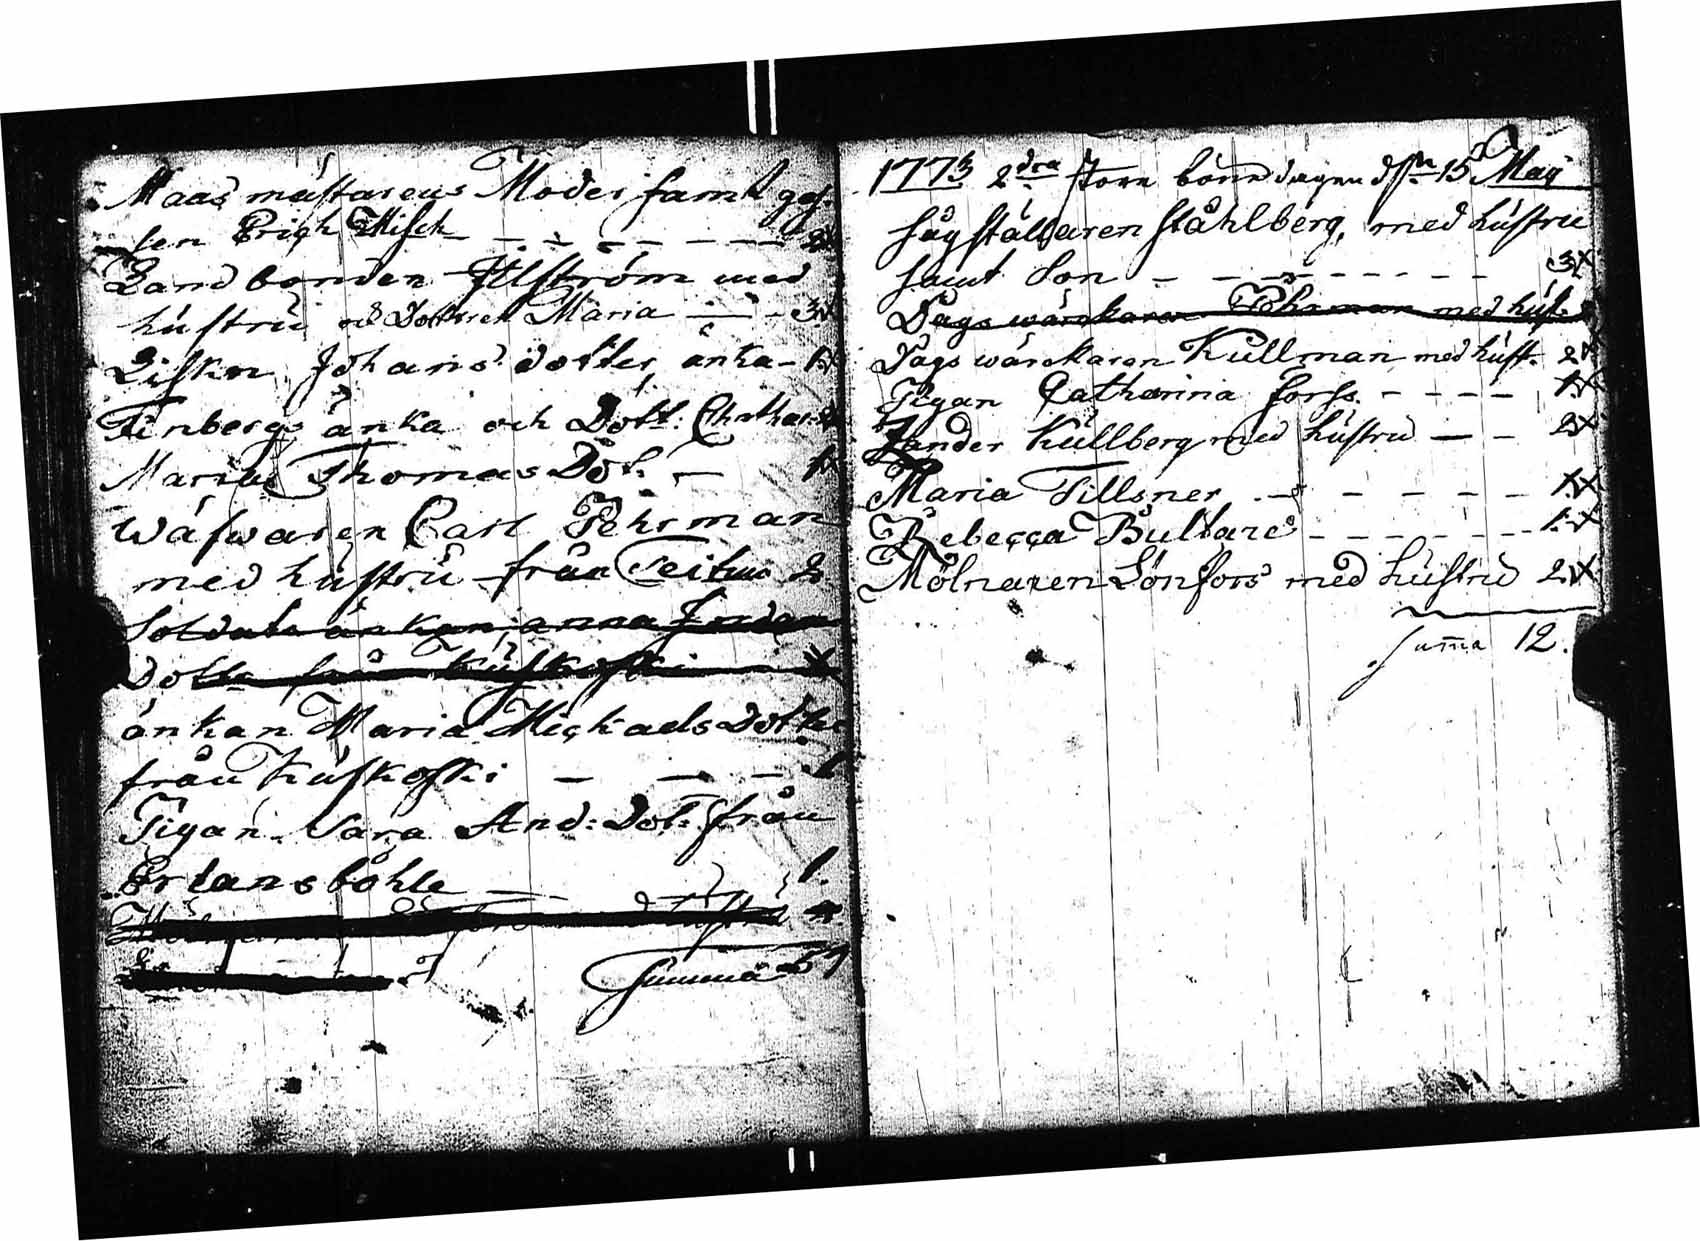 Maas mästarens Moder samt ges-
sen Erich Misck - - - - - - - 2
Landbonden Illström med
hústrú och Dottren Maria - - 3
Liskn Johans dotter änka - 1
Finbergs änka och Dott: Chathar: 2
Maria Thomas Dot: - 1
Wäfwaren Carl Pehrman
med hústrú från Teitus 2
Soldats änkan anna Jndan
Dotter från Kúskoski
änkan Maria Michaels Dotter
från Kúskoski - - - 1
Pigan Sara And: Dot: från
Erlansböhle - 1.
Summa 57
1773 2dra store bönedagen dn 15 Maij
sågställaren Ståhlberg, med hústru
samt Son - - - - - - - - 3
Dags wärckaren Pehrman med húst. 2
Dags wärckaren Kullman med húst. 2
Pigan Catharina Forss. - - - - 1
Zander Kúllberg med hústru - - 2
Maria Tillsner - - - - - - 1
Rebecca Bullard - - - - - - 1
Mölnaren Lönfors med hústru 2
Summa 12.